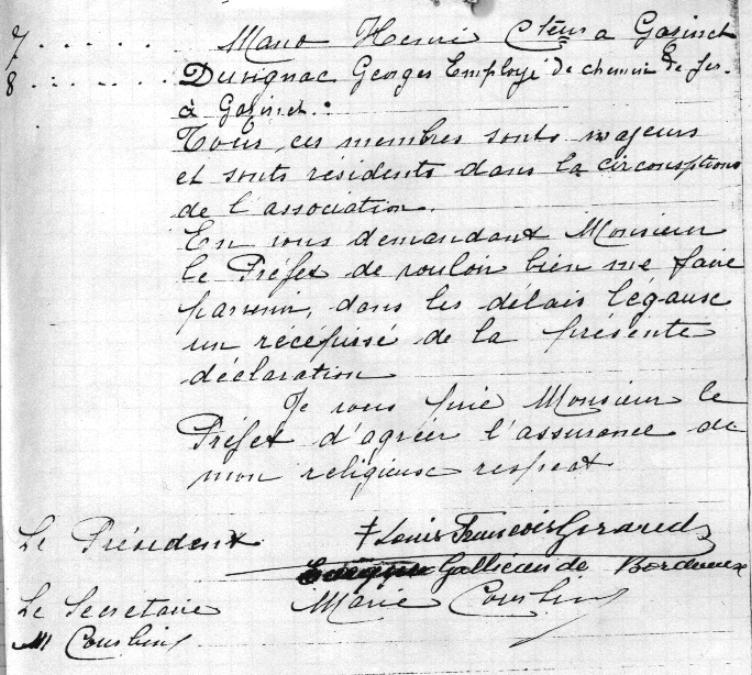 7 . . . . . Mano Henri Cteur a Gazinet
8 . . . . . Duvignac Georges Employé de chemin de fer.
à Gazinet.
Tous, ces membres sonts majeurs
et sonts résidents dans la circonsptions
de l'association.
En vous demandant Monsieur
le Préfet de vouloir bien me faire
parvenir, dans les délais légause
un récépissé de la présente
déclaration
Je vous prie Monsieur le
Préfet d'agréer l'assurance de
mon religieuse respeat
Le Président + Louis François Girard
Gallican de Bordeaux
Le Secretaire Marie Courbin
M Courbin